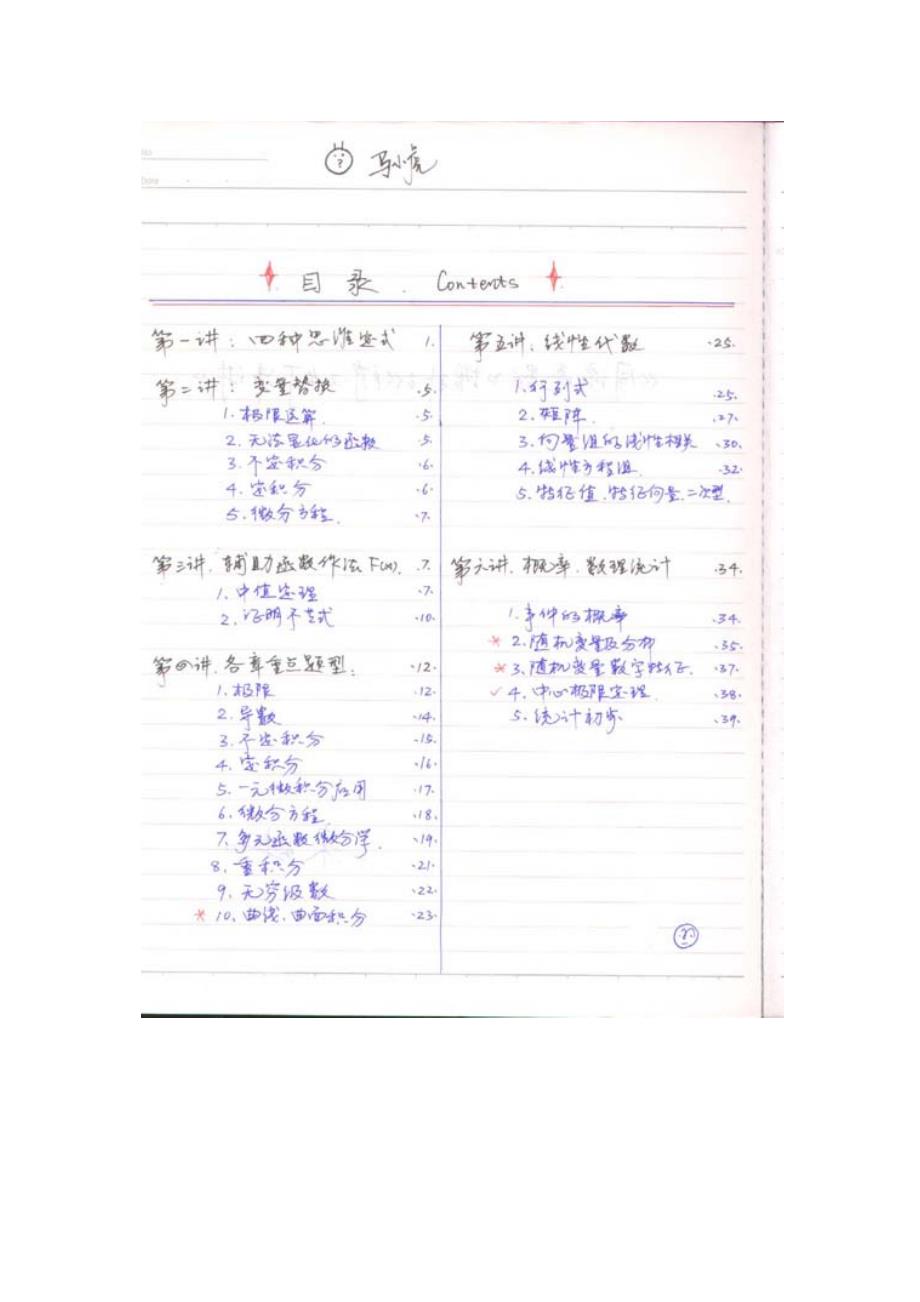 No
Date
马小虎
目录. Contents
第一讲: 四种思维定式 1.
第二讲: 变量替换 ·5·
1. 极限运算. ·5·
2. 无法显化的函数 ·5·
3. 不定积分 ·6·
4. 定积分 ·6·
5. 微分方程. ·7·
第三讲. 辅助函数作法 F(x). ·7·
1. 中值定理 ·7·
2. 证明不等式 ·10·
第四讲. 各章重点题型: ·12·
1. 极限 ·12·
2. 导数 ·14·
3. 不定积分 ·15·
4. 定积分 ·16·
5. 一元微积分应用 ·17·
6. 微分方程. ·18·
7. 多元函数微分学. ·19·
8. 重积分 ·21·
9. 无穷级数 ·22·
* 10. 曲线. 曲面积分 ·23·
第五讲. 线性代数 ·25·
1. 行列式 ·25·
2. 矩阵. ·27·
3. 向量组的线性相关 ·30·
4. 线性方程组. ·32·
5. 特征值. 特征向量. 二次型.
第六讲. 概率. 数理统计 ·34·
1. 事件的概率 ·34·
* 2. 随机变量及分布 ·35·
* 3. 随机变量数字特征. ·37·
✓ 4. 中心极限定理. ·38·
5. 统计初步 ·39·